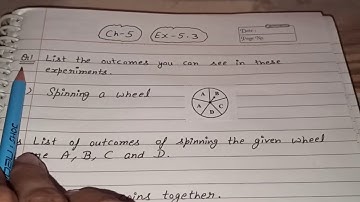 Ch-5 Ex-5.3
Date:
Page No.
Q1. List the outcomes you can see in these
experiments.
Spinning a wheel
A B
A C
A D
List of outcomes of spinning the given wheel
A, B, C and D.
together.